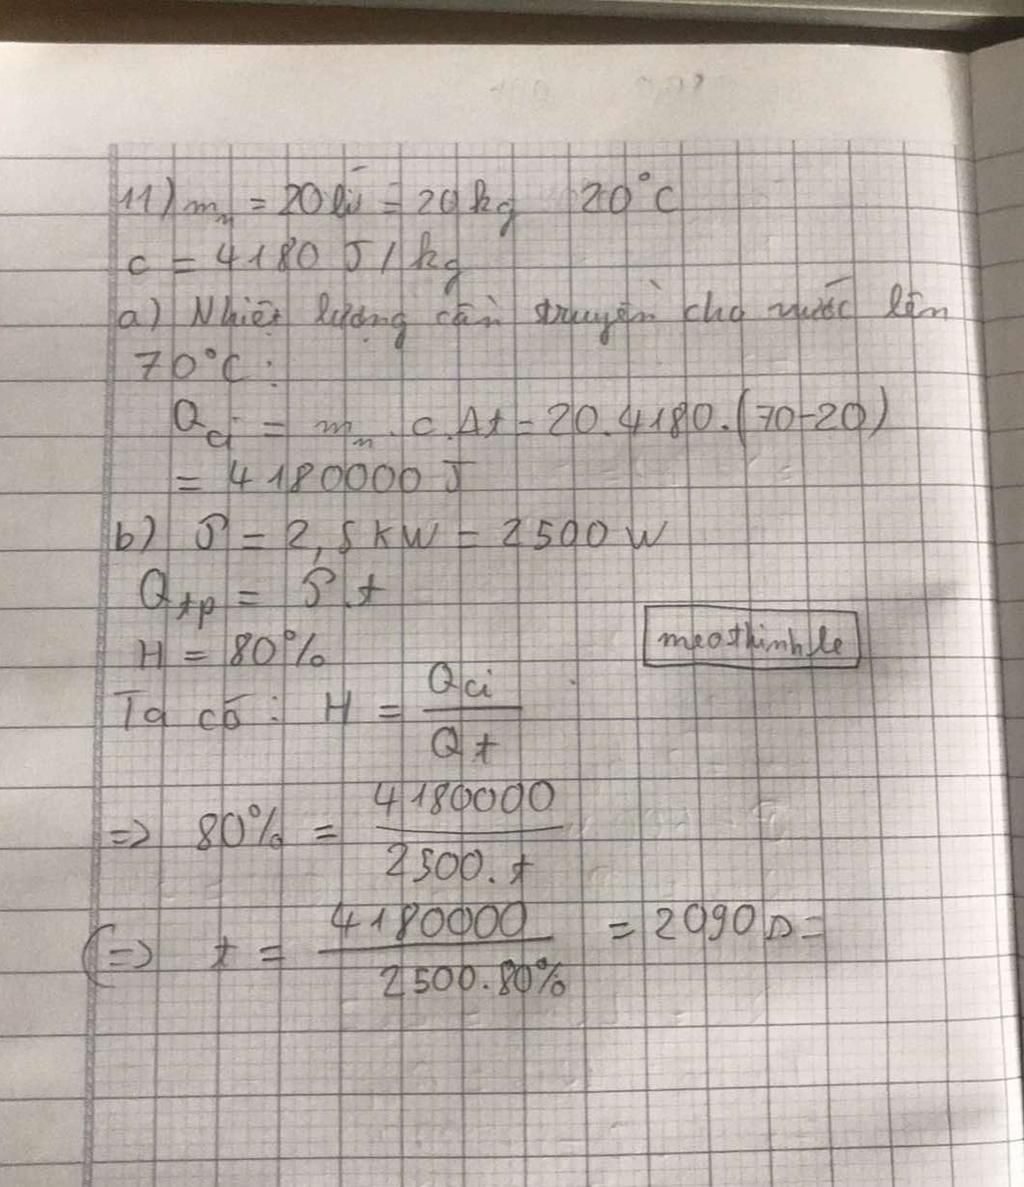 11) mₙ = 20 lít = 20 kg 20°C
c = 4180 J/kg
a) Nhiệt lượng cần truyền cho nước lên
70°C:
Qci = mₙ . c. Δt = 20. 4180. (70-20)
= 4180000 J
b) P = 2,5 KW = 2500 W
Qtp = P. t
H = 80%
meothinhle
Ta có: H = Qci / Qt
=> 80% = 4180000 / 2500. t
(=> t = 4180000 / 2500.80% = 2090 s =